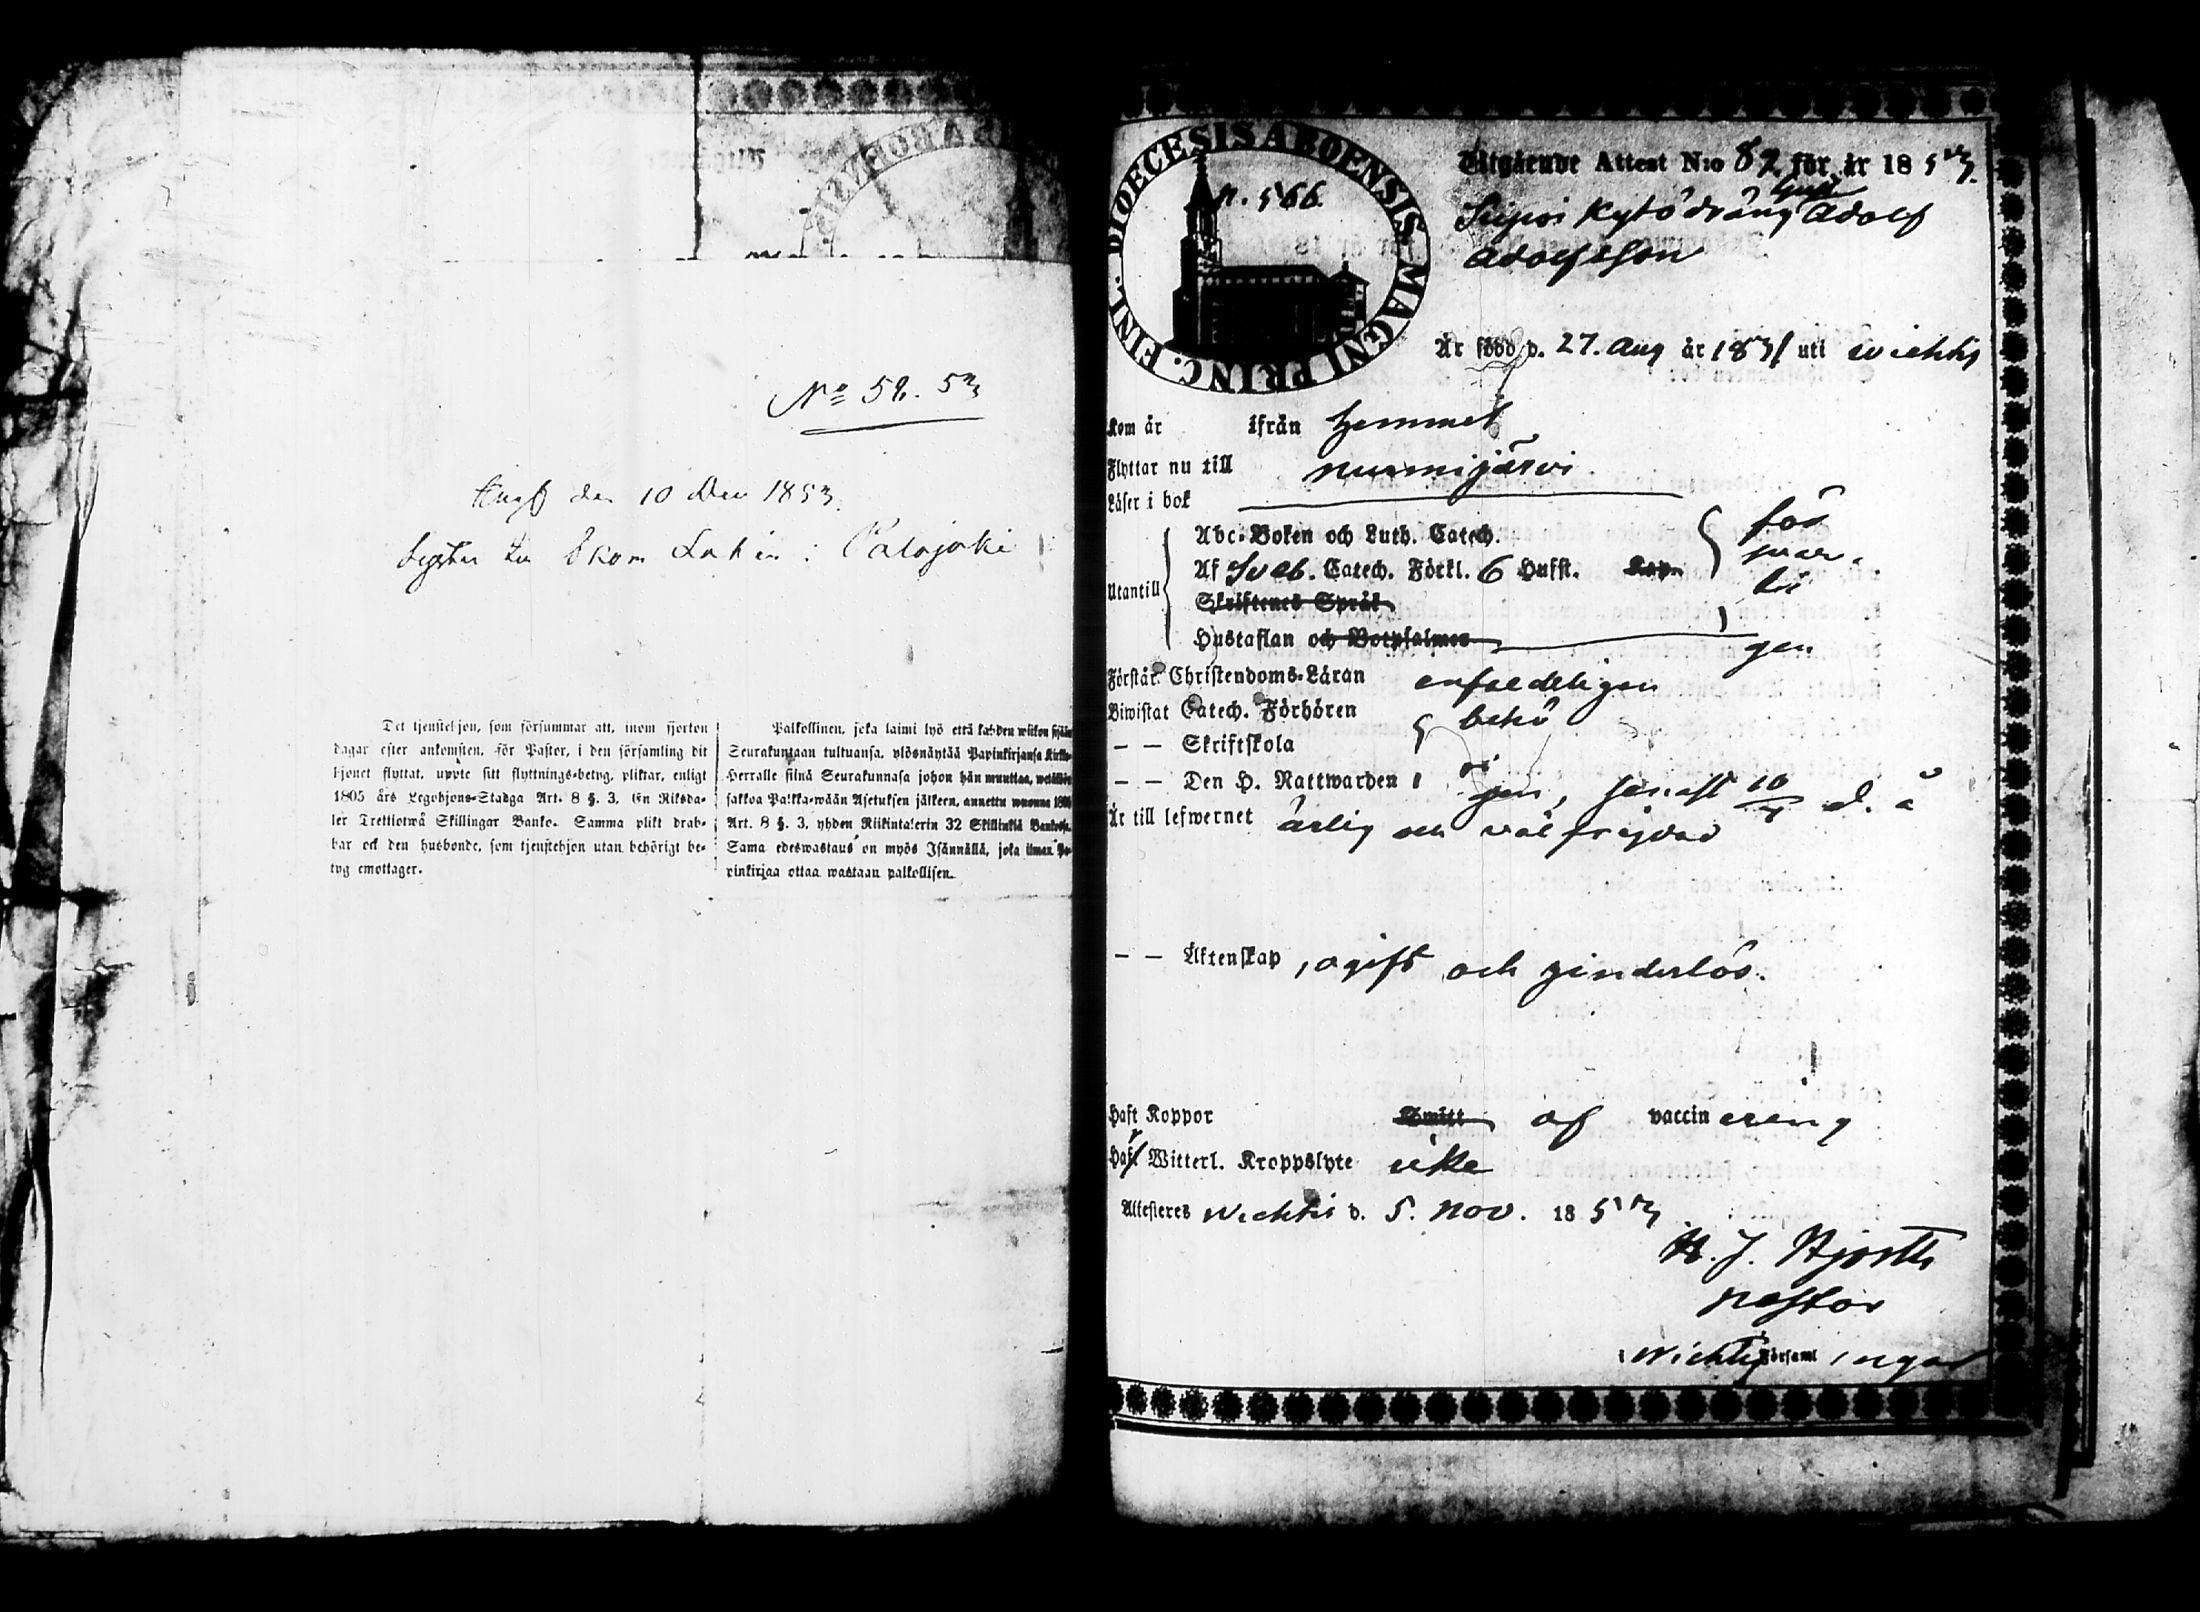 No 58. 53
den 10 Dec 1853.
Lahin i Palojoki
Det tjenstehjon, som försummar att, inom fjorton
dagar efter ankomsten, för Pastor, i den församling dit
hjonet flyttat, uppte sitt flyttnings-betyg, pliktar, enligt
1805 års Legohjons-Stadga Art. 8 §. 3, En Riksda-
ler Trettiotwå Skillingar Banko. Samma plikt drab-
bar ock den husbonde, som tjenstehjon utan behörigt be-
tyg emottager.
Palkollinen, joka laimi lyö että kahden wiikon sisään
Seurakuntaan tultuansa, ylösnäyttää Papinkirjansa Kirkko-
Herralle siinä Seurakunnasa johon hän muuttaa, wetäköön
sakkoa Palkka-wään Asetuksen jälkeen, annettu wuonna 1805
Art. 8 §. 3, yhden Riikintalerin 32 Skillinkiä Bankossa.
Sama edeswastaus on myös Isännällä, joka ilman Pa-
pinkirjaa ottaa wastaan palkollisen.
DIOECESIS ABOENSIS MAGNI PRINC. FINL.
n. 566.
Utgående Attest N:o 82 för år 1853.
Kytö dräng Adolf
Adolfsson
Är född d. 27. Aug år 1831 uti Wichtis
Kom år ifrån hemmet
Flyttar nu till Nurmijärvi
Läser i bok
Abc-Boken och Luth. Catech. för
Utantill Af Sveb. Catech. Förkl. 6 Hufst. Kap. svar-
Skriftenes Språk li
Hustaflan och Botpsalmer gen
Förstår Christendoms-Läran enfaldeligen
Biwistat Catech. Förhören behö
— — Skriftskola
— — Den H. Nattwarden ri gen, senast 10/4 d. å
Är till lefwernet ärlig och välfrejdad
— — Äktenskap, ogift och hinderlös.
Haft Koppor Smitt af vaccinering
Har Witterl. Kroppslyte icke
Attesteras Wichtis d. 5. Nov. 1853
H. J. Hjorth
pastor
i Wichtis Församlingar